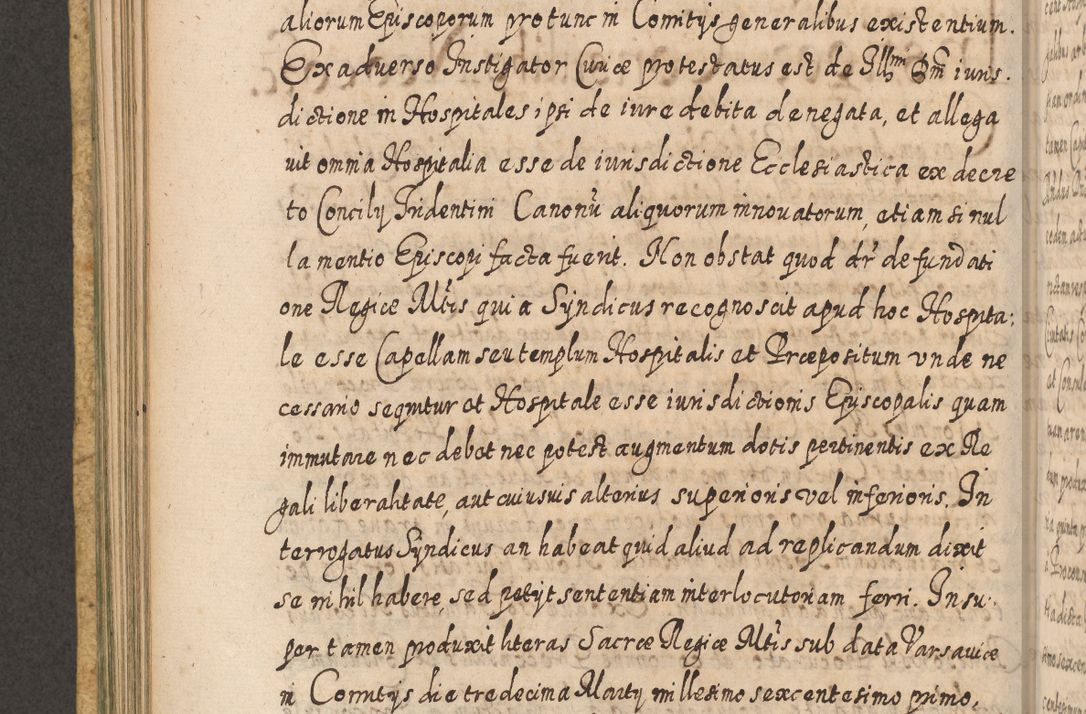 aliorum Episcoporum pro tunc in Comitijs generalibus existentium.
Ex adverso Instigator Curiæ protestatus est de Illmi Dni iuris.
dictione in Hospitales ipsi de iure debita denegata, et allega
uit omnia Hospitalia esse de iurisdictione Ecclesiastica ex decre
to Concilij Tridentini Canonũ aliquorum innouatorum, etiam si nul
la mentio Episcopi facta fuerit. Non obstat quod dr̃ de fundati
one Regiæ Mtis quia Syndicus recognoscit apud hoc Hospita:
le esse Capellam seu templum Hospitalis et Præpositum vnde ne
cessario sequitur et Hospitale esse iurisdictionis Episcopalis quam
immutare nec debet nec potest augmentum dotis pertinentis ex Re
gali liberalitate, aut cuiusuis alterius superioris vel inferioris. In
terrogatus Syndicus an habeat quid aliud ad replicandum dixit
se nihil habere, sed petijt sententiam interlocutoriam ferri. Insu:
per tamen produxit literas Sacræ Regiæ Mtis sub data Varsauiæ
in Comitijs die tredecima Martij millesimo sexcentesimo primo,